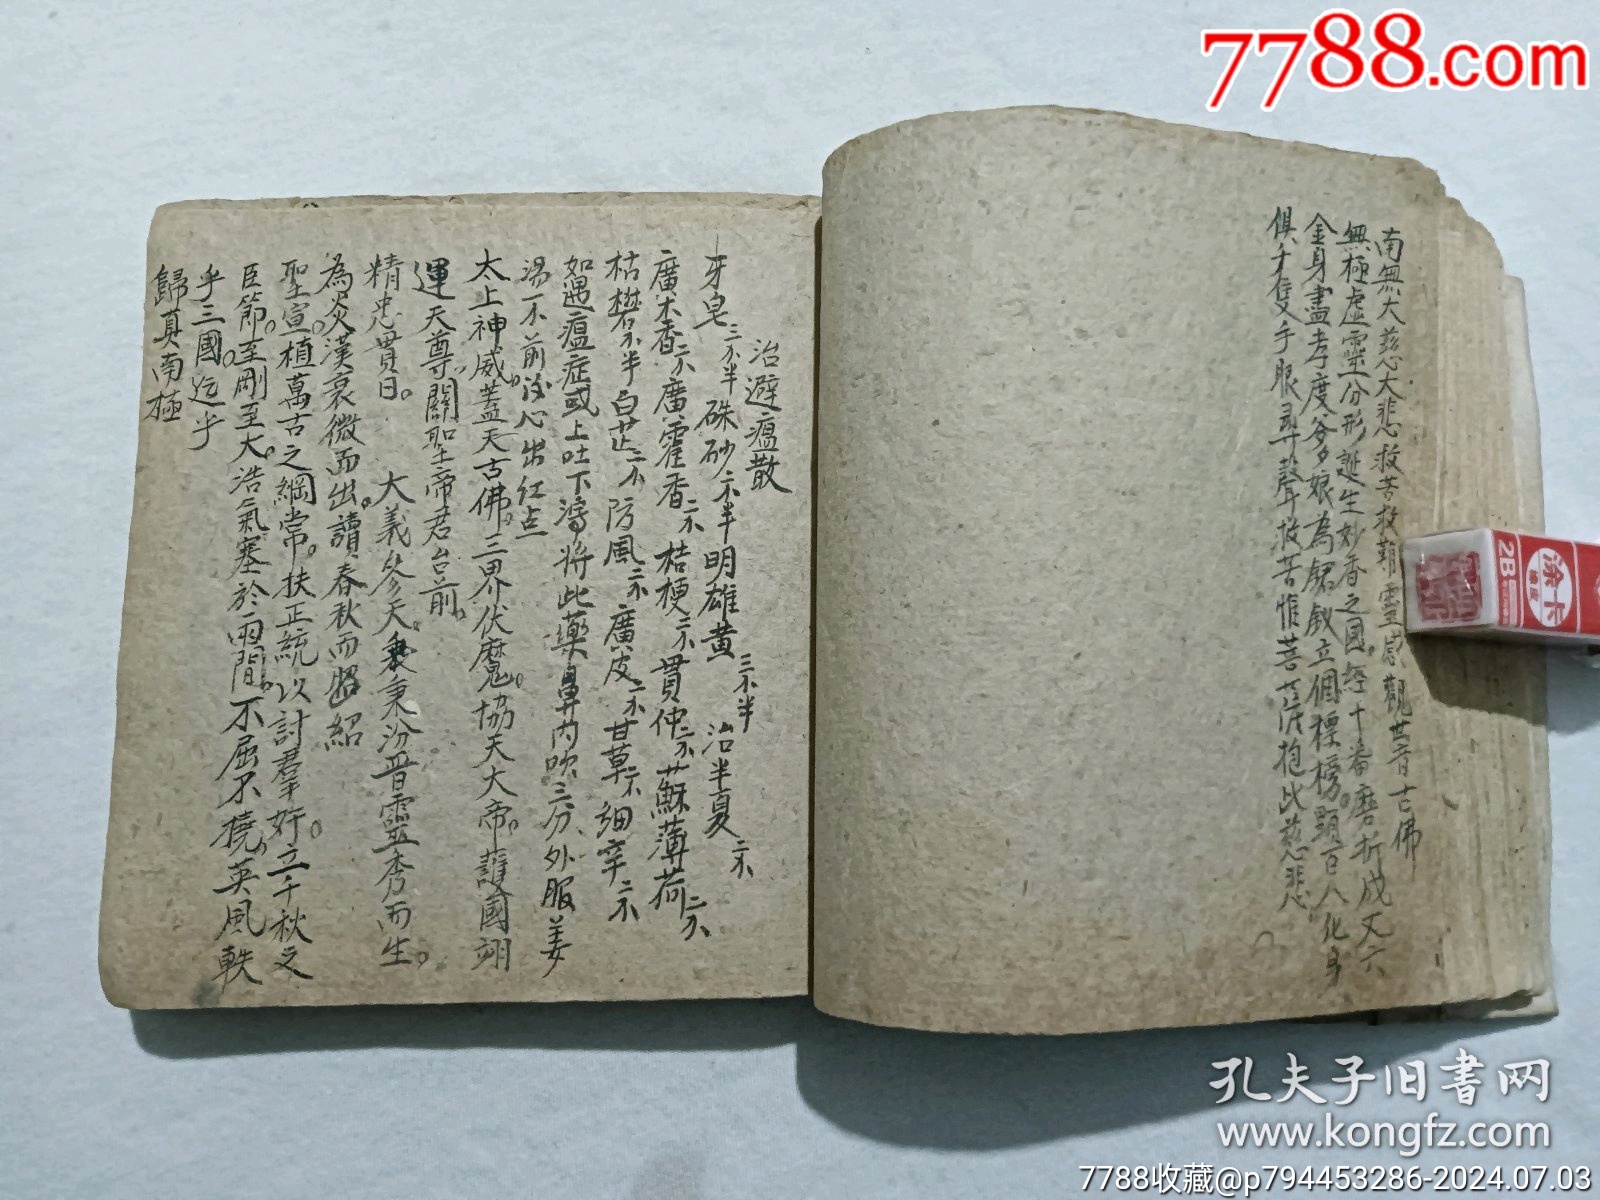 7788.com
南無大慈大悲救苦救難靈感觀世音古佛
無極虛靈分形誕生妙香之國。經十番磨折成丈六
金身盡孝度爹娘為留釵立個標榜。顯百人化身
俱千隻手眼尋聲救苦惟菩薩抱此慈悲
治避瘟散
牙皂三不半硃砂二不半明雄黃三不半 治半夏二不
廣木香二不廣霍香二不桔梗二不貫仲二不蘇薄荷二不
枯礬不半白芷二不防風二不廣皮二不甘草二不細辛二不
如遇瘟症或上吐下瀉將此藥鼻內吹三分外服姜
湯一不前後心出紅点
太上神威。蓋天古佛。三界伏魔。協天大帝。護國翊
運天尊。關聖帝君台前。
精忠貫日。 大義參天。秉汾晉靈秀而生。
為炎漢衰微而出。讀春秋而紹
聖宣。植萬古之綱常。扶正統以討羣奸。立千秋之
臣節。至剛至大。浩氣塞於兩間。不屈不撓。英風軼
乎三國。迄乎
歸真南極
涂卡
橡皮
2B
孔夫子旧书网
www.kongfz.com
7788收藏@p794453286-2024.07.03